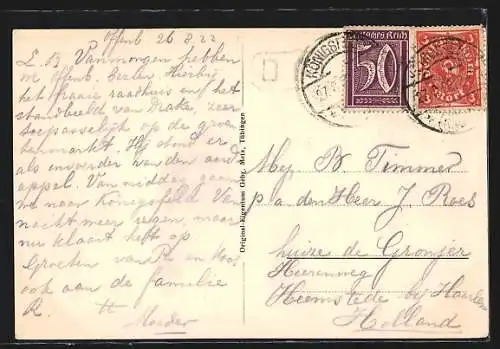 Offenb 26 8 22
L. B. Vanmorgen hebben
we Offenb. gezien. Hierbij
het fraaie raadhuis en het
standbeeld van Drake, zeer
toepasselijk op de groen
tenmarkt. Hij stond er
als invoerder van den aard
appel. Van middag gaan
we naar Königsfeld. Van
nacht meer regen, maar
nu klaart het op
Groeten van P. en
ook aan de familie
R. H
Moeder
Original-Eigentum Gebr. Metz, Tübingen
KÖNIGSF
Deutsches Reich
50
3
Mark
Mej. B Timmer
p/a den Heer J. Roes
huize de Gronjer
Herenweg
Heemstede bij Haarlem
Holland